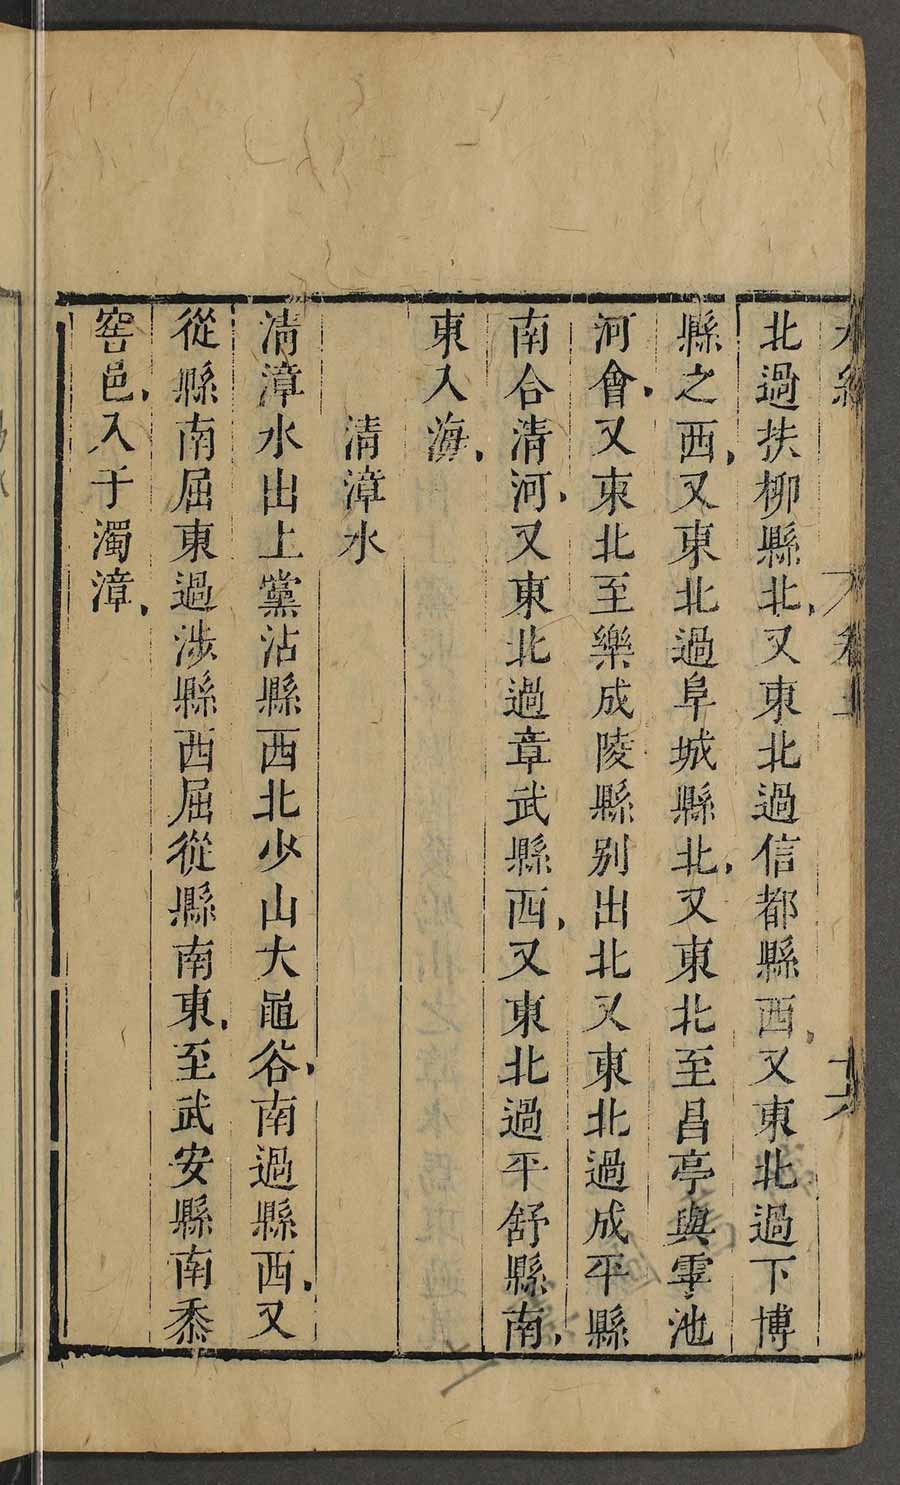 北過扶柳縣北又東北過信都縣西又東北過下博
縣之西又東北過阜城縣北又東北至昌亭與雩池
河會又東北至樂成陵縣別出北又東北過成平縣
南合清河又東北過章武縣西又東北過平舒縣南
東入海
清漳水
清漳水出上黨沾縣西北少山大黽谷南過縣西又
從縣南屈東過涉縣西屈從縣南東至武安縣南黍
窖邑入于濁漳